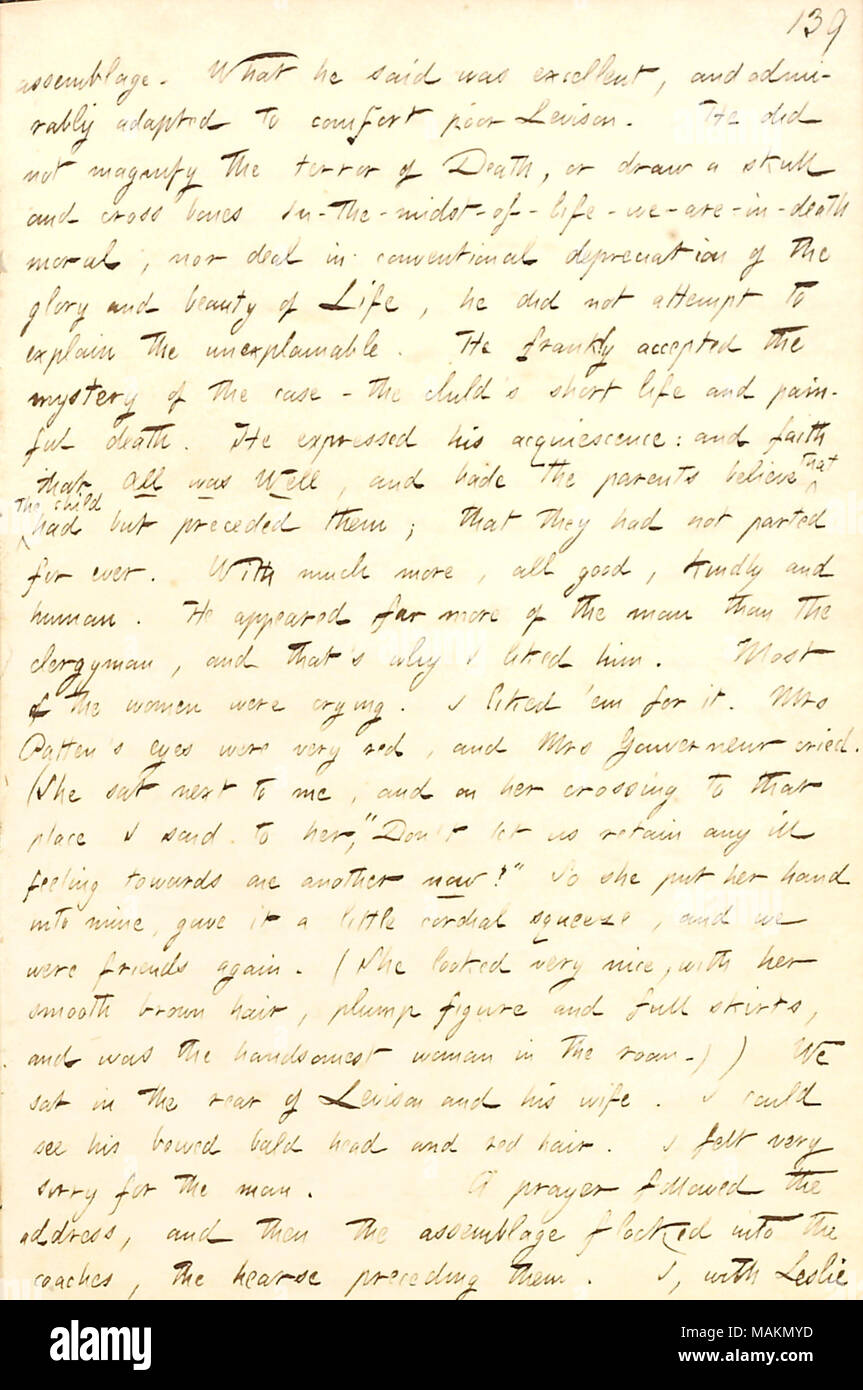 139
assemblage. What he said was excellent, and admi-
rably adapted to comfort poor Levison. He did
not magnify the terror of Death, or draw a skull
and cross bones in-the-midst-of-life-we-are-in-death
moral, nor deal in conventional depreciation of the
glory and beauty of Life, he did not attempt to
explain the unexplainable. He frankly accepted the
mystery of the case - the child's short life and pain-
ful death. He expressed his acquiescence: and faith
that all was Well, and bade the parents believe that
the child had but preceded them; that they had not parted
for ever. With much more, all good, kindly and
human. He appeared far more of the man than the
clergyman, and that's why I liked him. Most
of the women were crying. I liked 'em for it. Mrs
Patten's eyes were very red, and Mrs Gouverneur cried.
(She sat next to me, and on her crossing to that
place I said to her, "Don't let us retain any ill
feeling towards one another now!" So she put her hand
into mine, gave it a little cordial squeeze, and we
were friends again. (She looked very nice, with her
smooth brown hair, plump figure and full skirts,
and was the handsomest woman in the room.)) We
sat in the rear of Levison and his wife. I could
see his bowed bald head and red hair. I felt very
sorry for the man. A prayer followed the
address, and then the assemblage flocked into the
coaches, the hearse preceding them. I, with Leslie
alamy
Image ID: MAKMYD
www.alamy.com